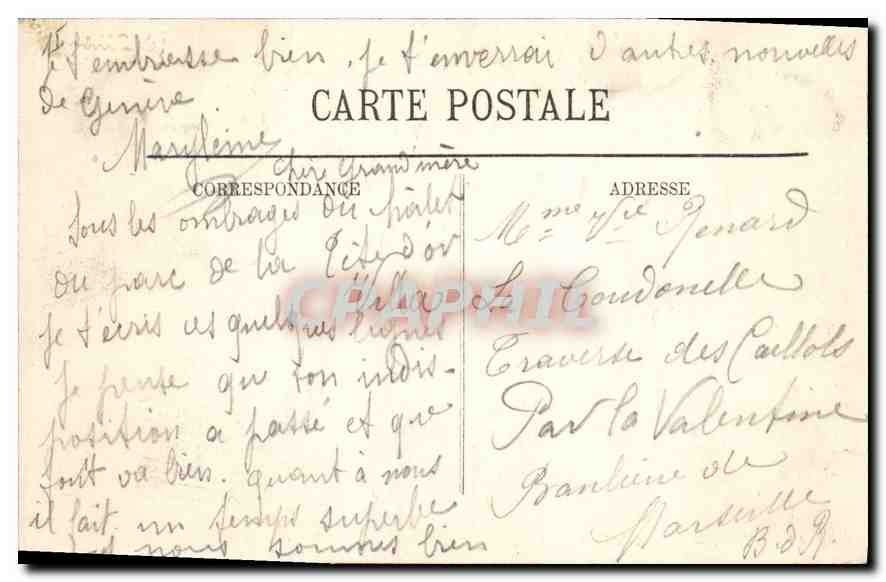 Je t'embrasse bien, je t'enverrai d'autres nouvelles
de Genève
CARTE POSTALE
Maryleine
chère Grand'mère
CORRESPONDANCE
Sous les ombrages du
du parc de la Tête d'or
je t'écris ces quelques lignes
je pense que ton indis-
position a passé et que
tout va bien. quant à nous
il fait un temps superbe
nous sommes bien
ADRESSE
Mme Vve Renard
Villa La Coudonelle
Traverse des Caillols
Par la Valentine
Banlieue de
Marseille
B. d R.
CPAPHIL